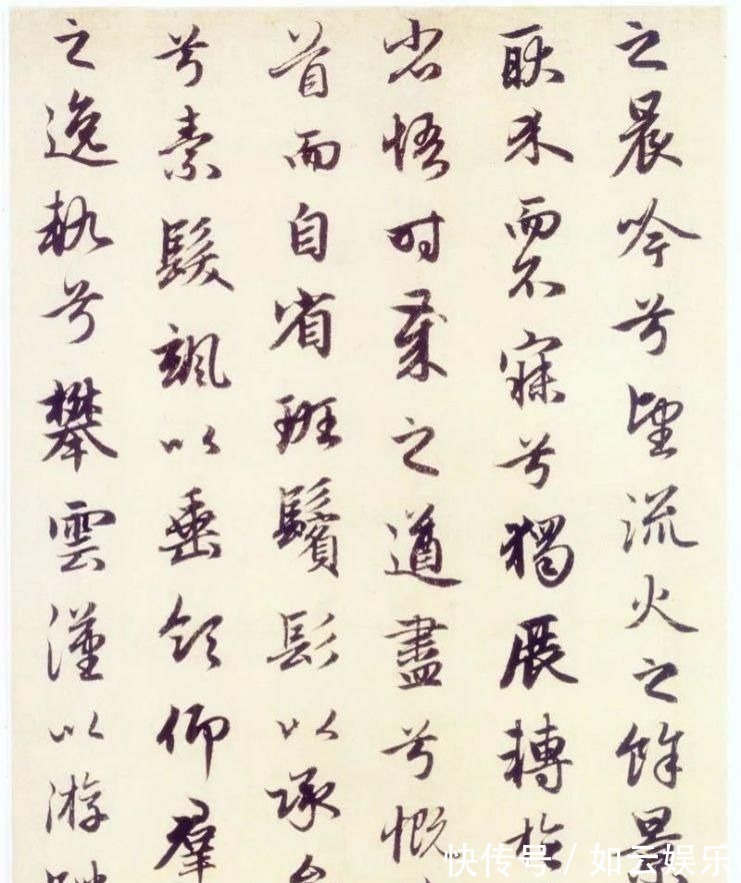 之晨吟兮望流火之餘景
耿介而不寐兮獨展轉於
省悟時歲之遒盡兮慨
首而自省班鬢髟以承
兮素髮颯以垂領仰羣
之逸軌兮攀雲漢以游
快传号 / 如云娱乐